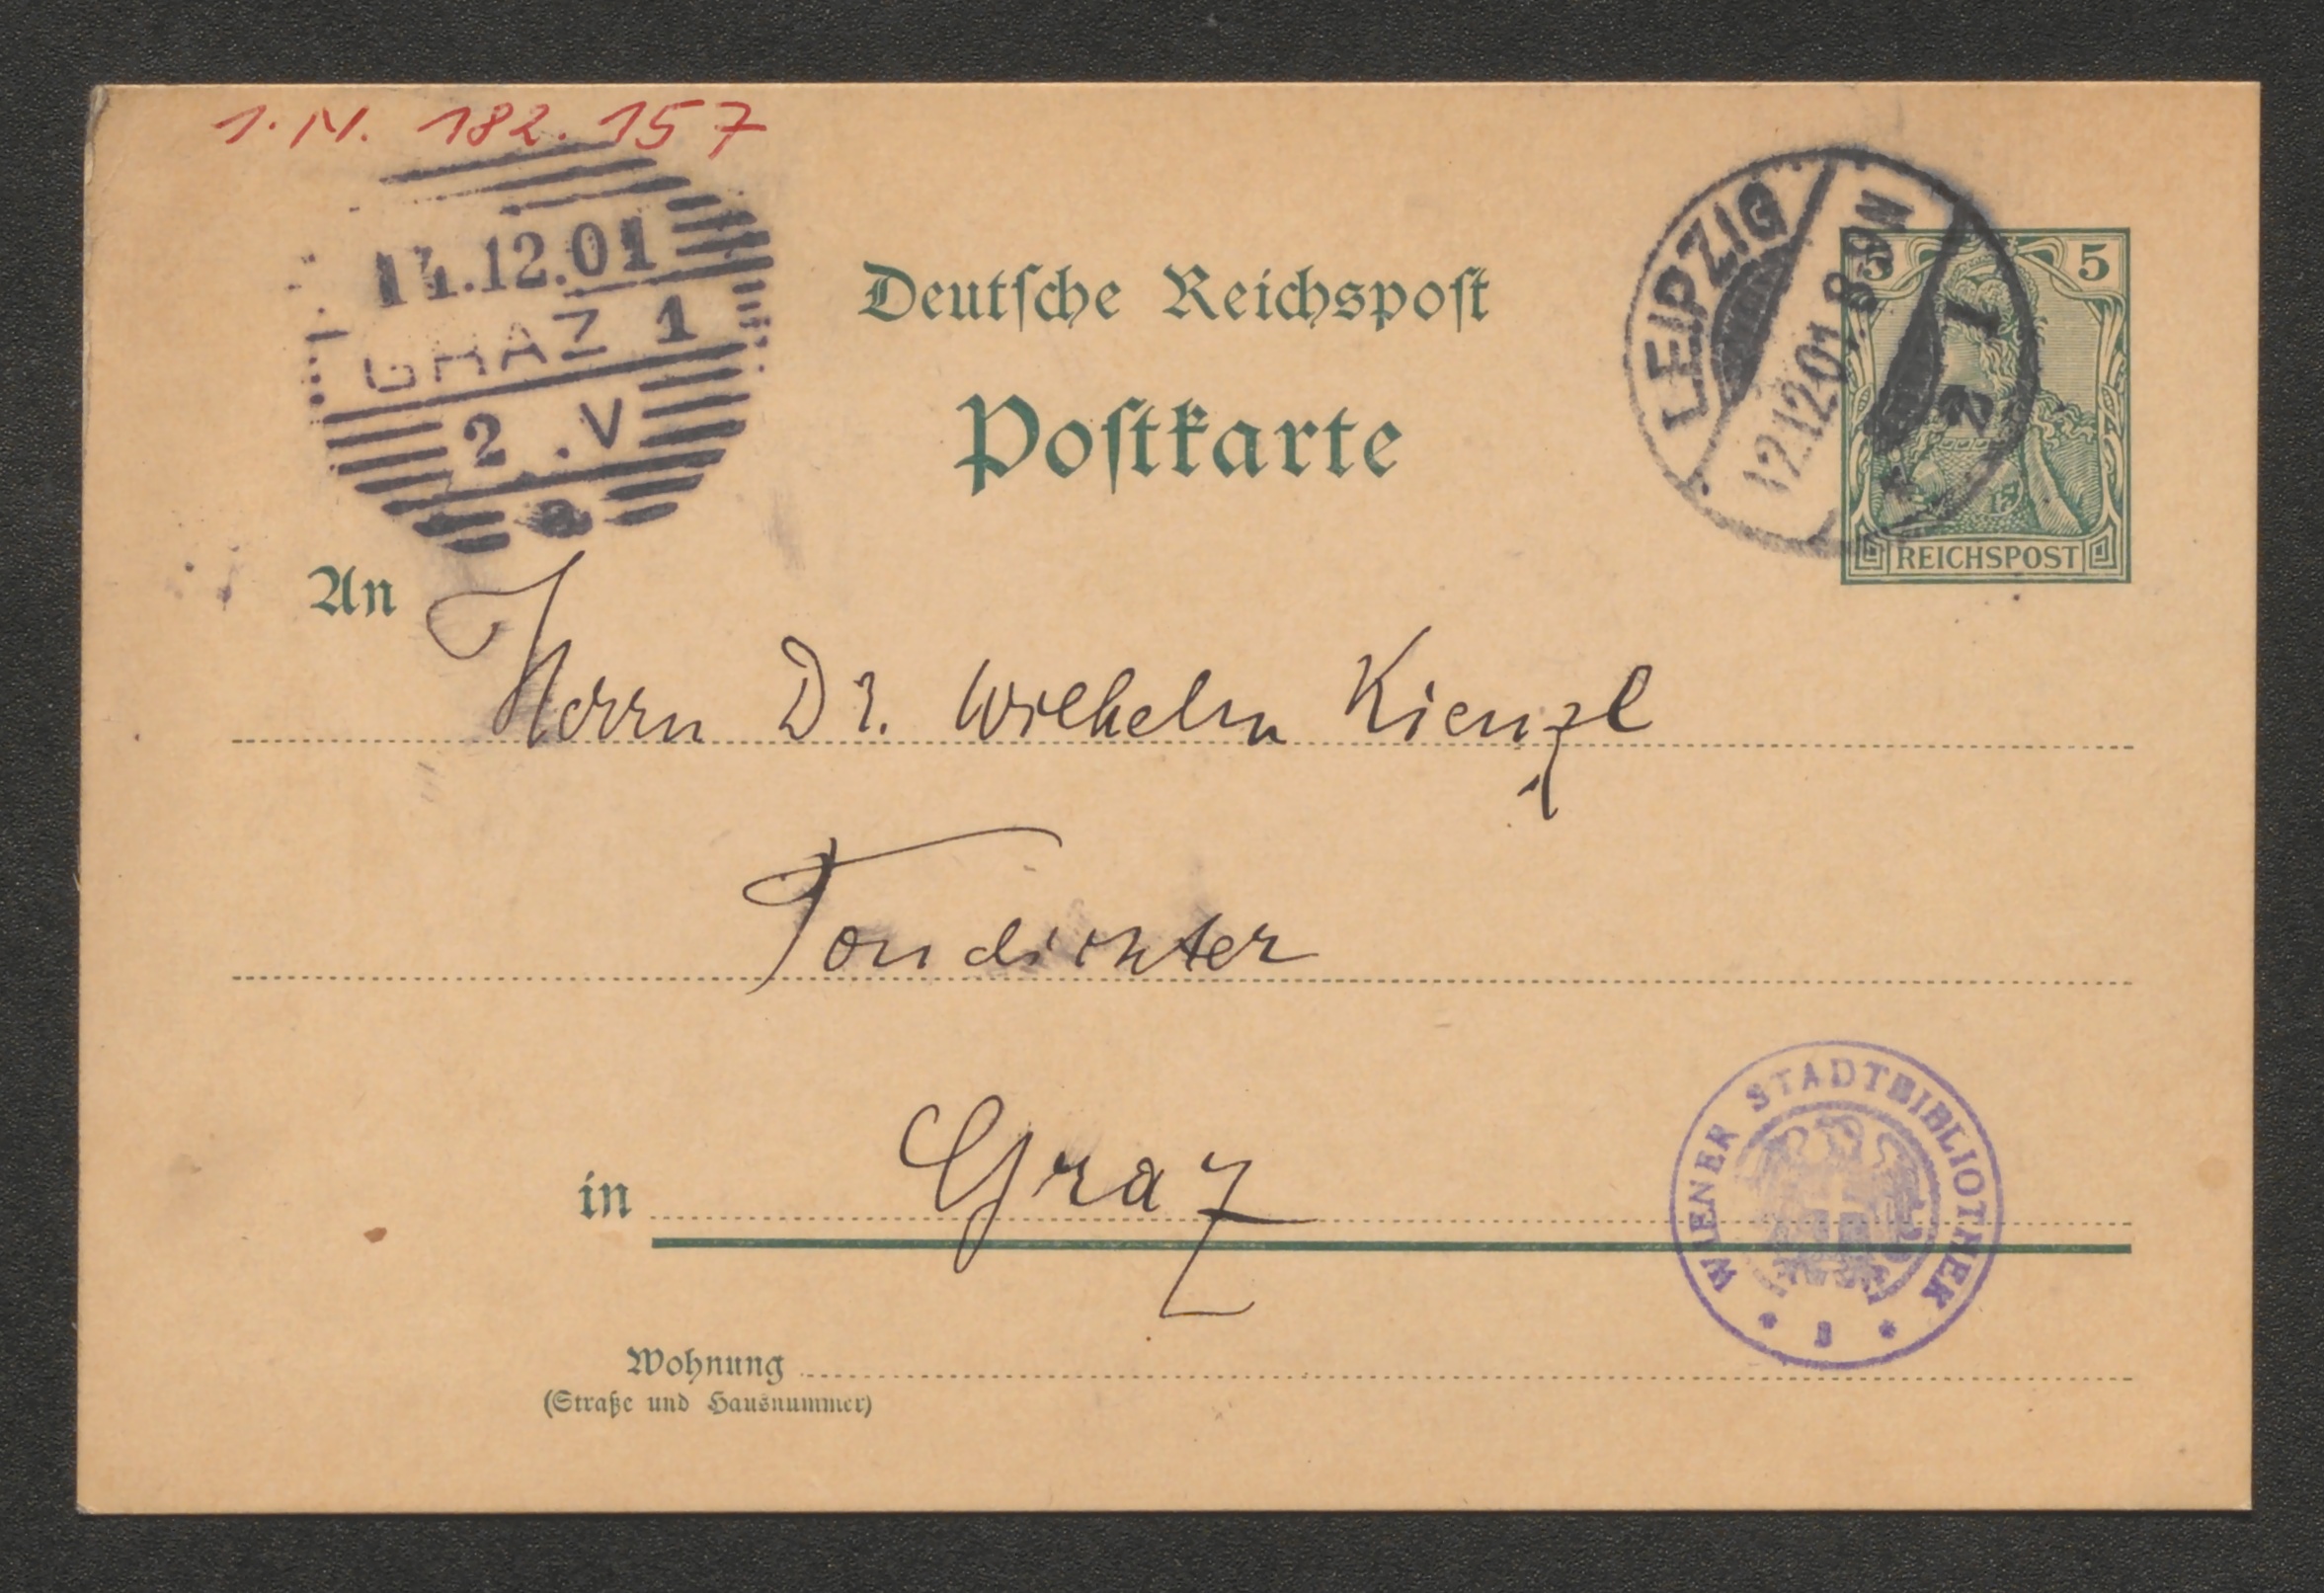 I.N. 182.157
14.12.01
GRAZ 1
2 . V
a
LEIPZIG
12.12.01.8-9N
1
5 5
REICHSPOST
Deutsche Reichspost
Postkarte
An Herrn Dr. Wilhelm Kienzl
Tondichter
in Graz
WIENER STADTBIBLIOTHEK
Wohnung
(Straße und Hausnummer)